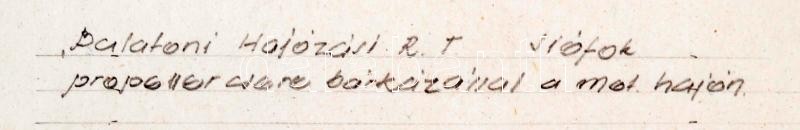 Balatoni Hajózási R. T Siófok
propeller csere bárkázással a mot. hajón.